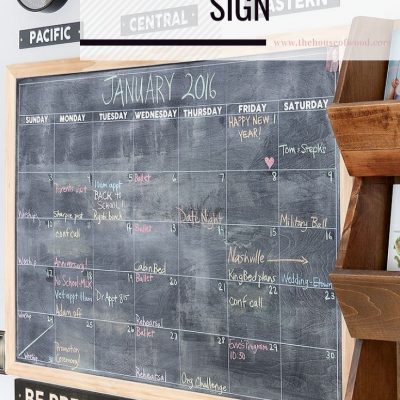 SIGN
CENTRAL
EASTERN
PACIFIC
www.thehouseofwood.com
JANUARY 2016
SUNDAY MONDAY TUESDAY WEDNESDAY THURSDAY FRIDAY SATURDAY
HAPPY NEW
YEAR!
Tom & Steph's
3 4 5 6 7 8 9
Parents visit
10am appt
BACK to
SCHOOL!
Ballet
Worship
Sharpie post
Date Night
Military Ball
13 14 15 16
Conf call
Ballet
Nashville
Anniversary!
Cabin Bed
King Bed plans
Wedding - E-town
17 18 19 20 21 22 23
No School-MLK
Vet appt 11am
Dr Appt 8:45
Ballet
Conf call
Adam off
Rehearsal
24 25 26 27 28 29 30
Promotion
Ceremony
10:30
Worship
31
Rehearsal
Org Challenge
BE PRE